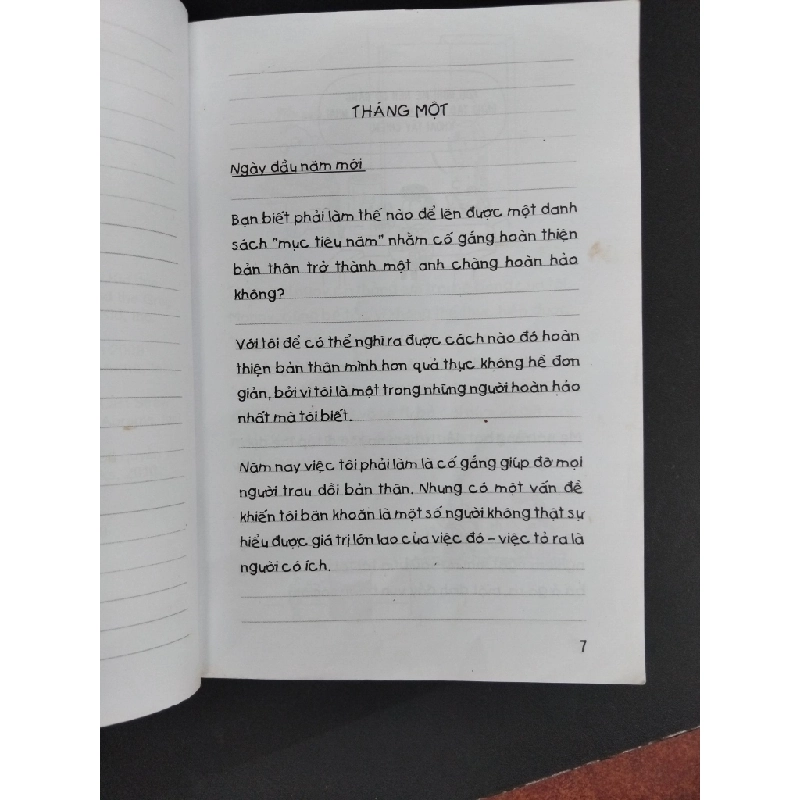 THÁNG MỘT
Ngày đầu năm mới
Bạn biết phải làm thế nào để lên được một danh
sách "mục tiêu năm" nhằm cố gắng hoàn thiện
bản thân trở thành một anh chàng hoàn hảo
không?
Với tôi để có thể nghĩ ra được cách nào đó hoàn
thiện bản thân mình hơn quả thực không hề đơn
giản, bởi vì tôi là một trong những người hoàn hảo
nhất mà tôi biết.
Năm nay việc tôi phải làm là cố gắng giúp đỡ mọi
người trau dồi bản thân. Nhưng có một vấn đề
khiến tôi băn khoăn là một số người không thật sự
hiểu được giá trị lớn lao của việc đó - việc tỏ ra là
người có ích.
7